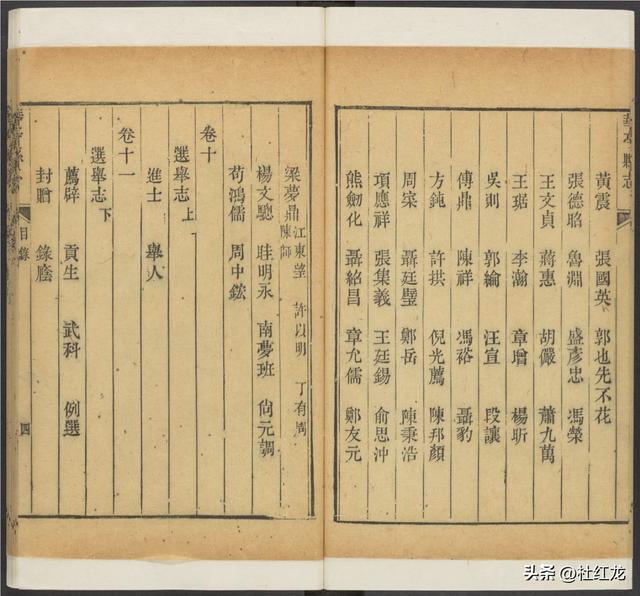 華亭縣志
黃震 張國英 郭也先不花
張德昭 魯淵 盛彥忠 馮榮
王文貞 蔣惠 胡儼 蕭九萬
王琚 李瀚 章增 楊昕
吳則 郭綸 汪宣 段讓
傅鼎 陳祥 馮裕 聶豹
方鈍 許拱 倪光薦 陳邦顏
周寀 聶廷璧 鄭岳 陳秉浩
項應祥 張集義 王廷錫 俞思沖
熊劒化 聶紹昌 章允儒 鄭友元
梁夢鼎 江東望 陳師 許以明 丁有周
楊文驄 眭明永 南夢班 尙元調
荀鴻儒 周中鋐
卷十
選舉志上
進士 舉人
卷十一
選舉志下
薦辟 貢生 武科 例選
封贈 錄廕
目錄
四
头条 @杜红龙